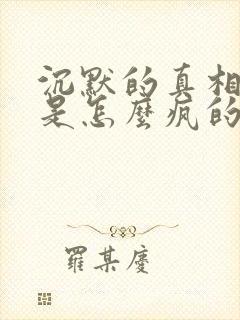 沉默的真相
是怎麼瘋的
羅某慶